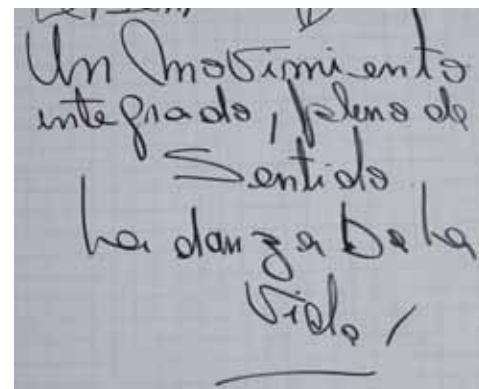 Un Movimiento
integrado, pleno de
Sentido
La danza De La
Vida,